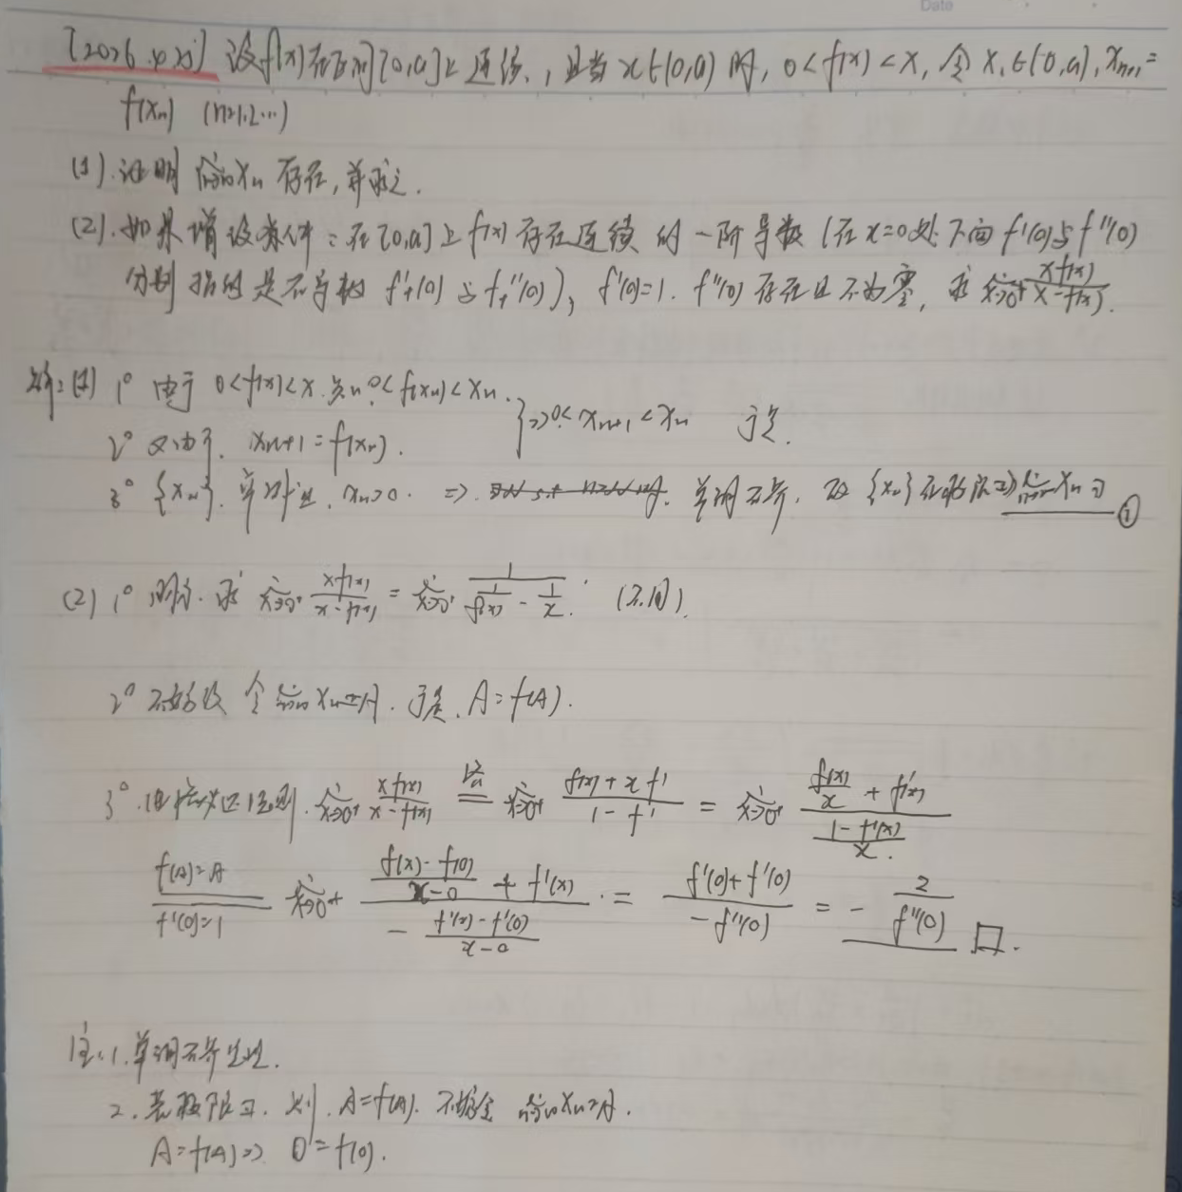 Date
[2026.    ] 设f(x)在区间[0,a]上连续,且当x∈(0,a)时, 0<f(x)<x, 令x₁∈(0,a), xₙ₊₁=
f(xₙ) (n=1,2…)
(1).证明 lim_{n→∞} xₙ 存在,并求之.
(2).如果增设条件:在[0,a]上f(x)存在连续的一阶导数(在x=0处下面f'(0)与f''(0)
分别指的是右导数 f'₊(0)与f₊''(0)), f'(0)=1. f''(0)存在且不为零, 求 lim_{x→0⁺} xf(x)/(x-f(x)).
解:(1) 1° 由于 0<f(x)<x. 0<f(xₙ)<xₙ.
2° 又由于. xₙ₊₁=f(xₙ). } ⇒ 0<xₙ₊₁<xₙ 于是.
3° {xₙ}. 单减且. xₙ>0. ⇒. 单调有界. 故{xₙ}存在极限 ⇒ lim_{n→∞} xₙ ∃ ①
(2) 1° 求 lim_{x→0⁺} xf(x)/(x-f(x)) = lim_{x→0⁺} 1/(1/f(x) - 1/x).
2° 不妨设 令 lim_{n→∞} xₙ=A. 于是. A=f(A).
3°. 由洛必达法则. lim_{x→0⁺} xf(x)/(x-f(x)) = lim_{x→0⁺} (f(x)+xf')/(1-f') = lim_{x→0⁺} (f(x)/x + f'(x))/((1-f'(x))/x).
f(A)=A f'(0)=1 lim_{x→0⁺} ((f(x)-f(0))/(x-0) + f'(x))/(-(f'(x)-f'(0))/(x-0)) = (f'(0)+f'(0))/(-f''(0)) = -2/f''(0) □.
注:1.单调有界
2.若极限∃. 则. A=f(A). 不妨令 lim_{n→∞} xₙ=A.
A=f(A) ⇒ 0=f(0).